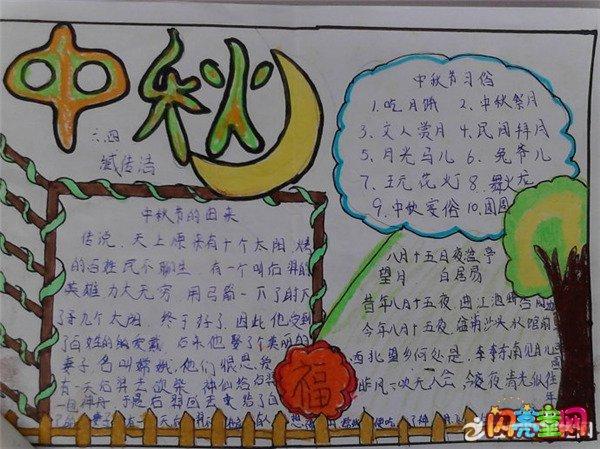 中秋
六.四
臧传洁
中秋节的由来
传说,天上原来有十个太阳,烤
的百姓民不聊生,有一个叫后羿的
英雄力大无穷,用弓箭一下了射
了九个太阳,终于好了,因此他受到
了百姓的爱戴,后来他娶了美丽的
妻子,名叫嫦娥,他们很恩爱
有一天后羿去砍柴,神仙给后羿
于是后羿回去
中秋节习俗
1.吃月饼 2.中秋祭月
3.文人赏月 4.民间拜月
5.月光马儿 6.兔爷儿
7.玩花灯 8.舞火龙
9.中秋宴俗 10.团圆
八月十五日夜湓亭
望月 白居易
昔年八月十五夜,曲江池畔杏园
今年八月十五夜,湓浦沙头水馆前
西北望乡何处是,东南见月
昨风一吹无人会,今夜清光似往
年
福
闪亮童网